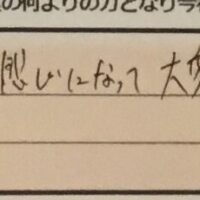 の何よりの力となり今
いになって 大